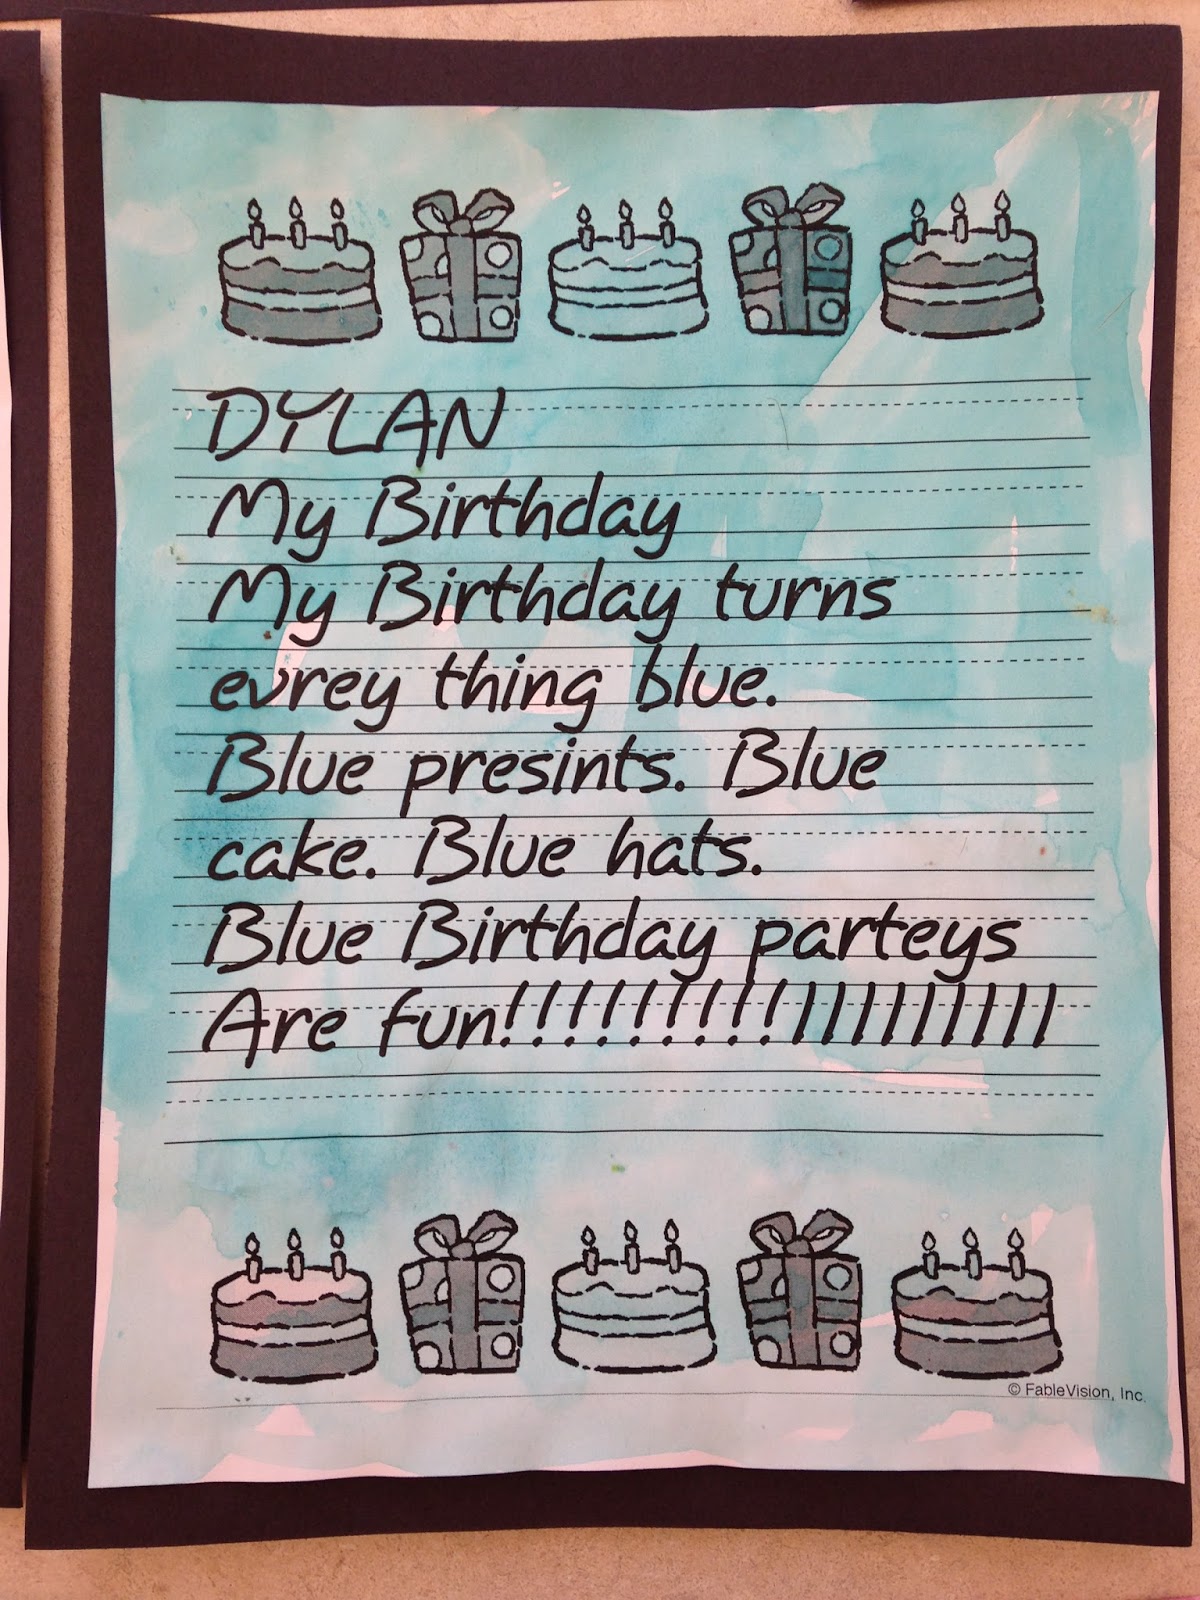 DYLAN
My Birthday
My Birthday turns
evrey thing blue.
Blue presints. Blue
cake. Blue hats.
Blue Birthday parteys
Are fun!!!!!!!!!lllllllll
© FableVision, Inc.